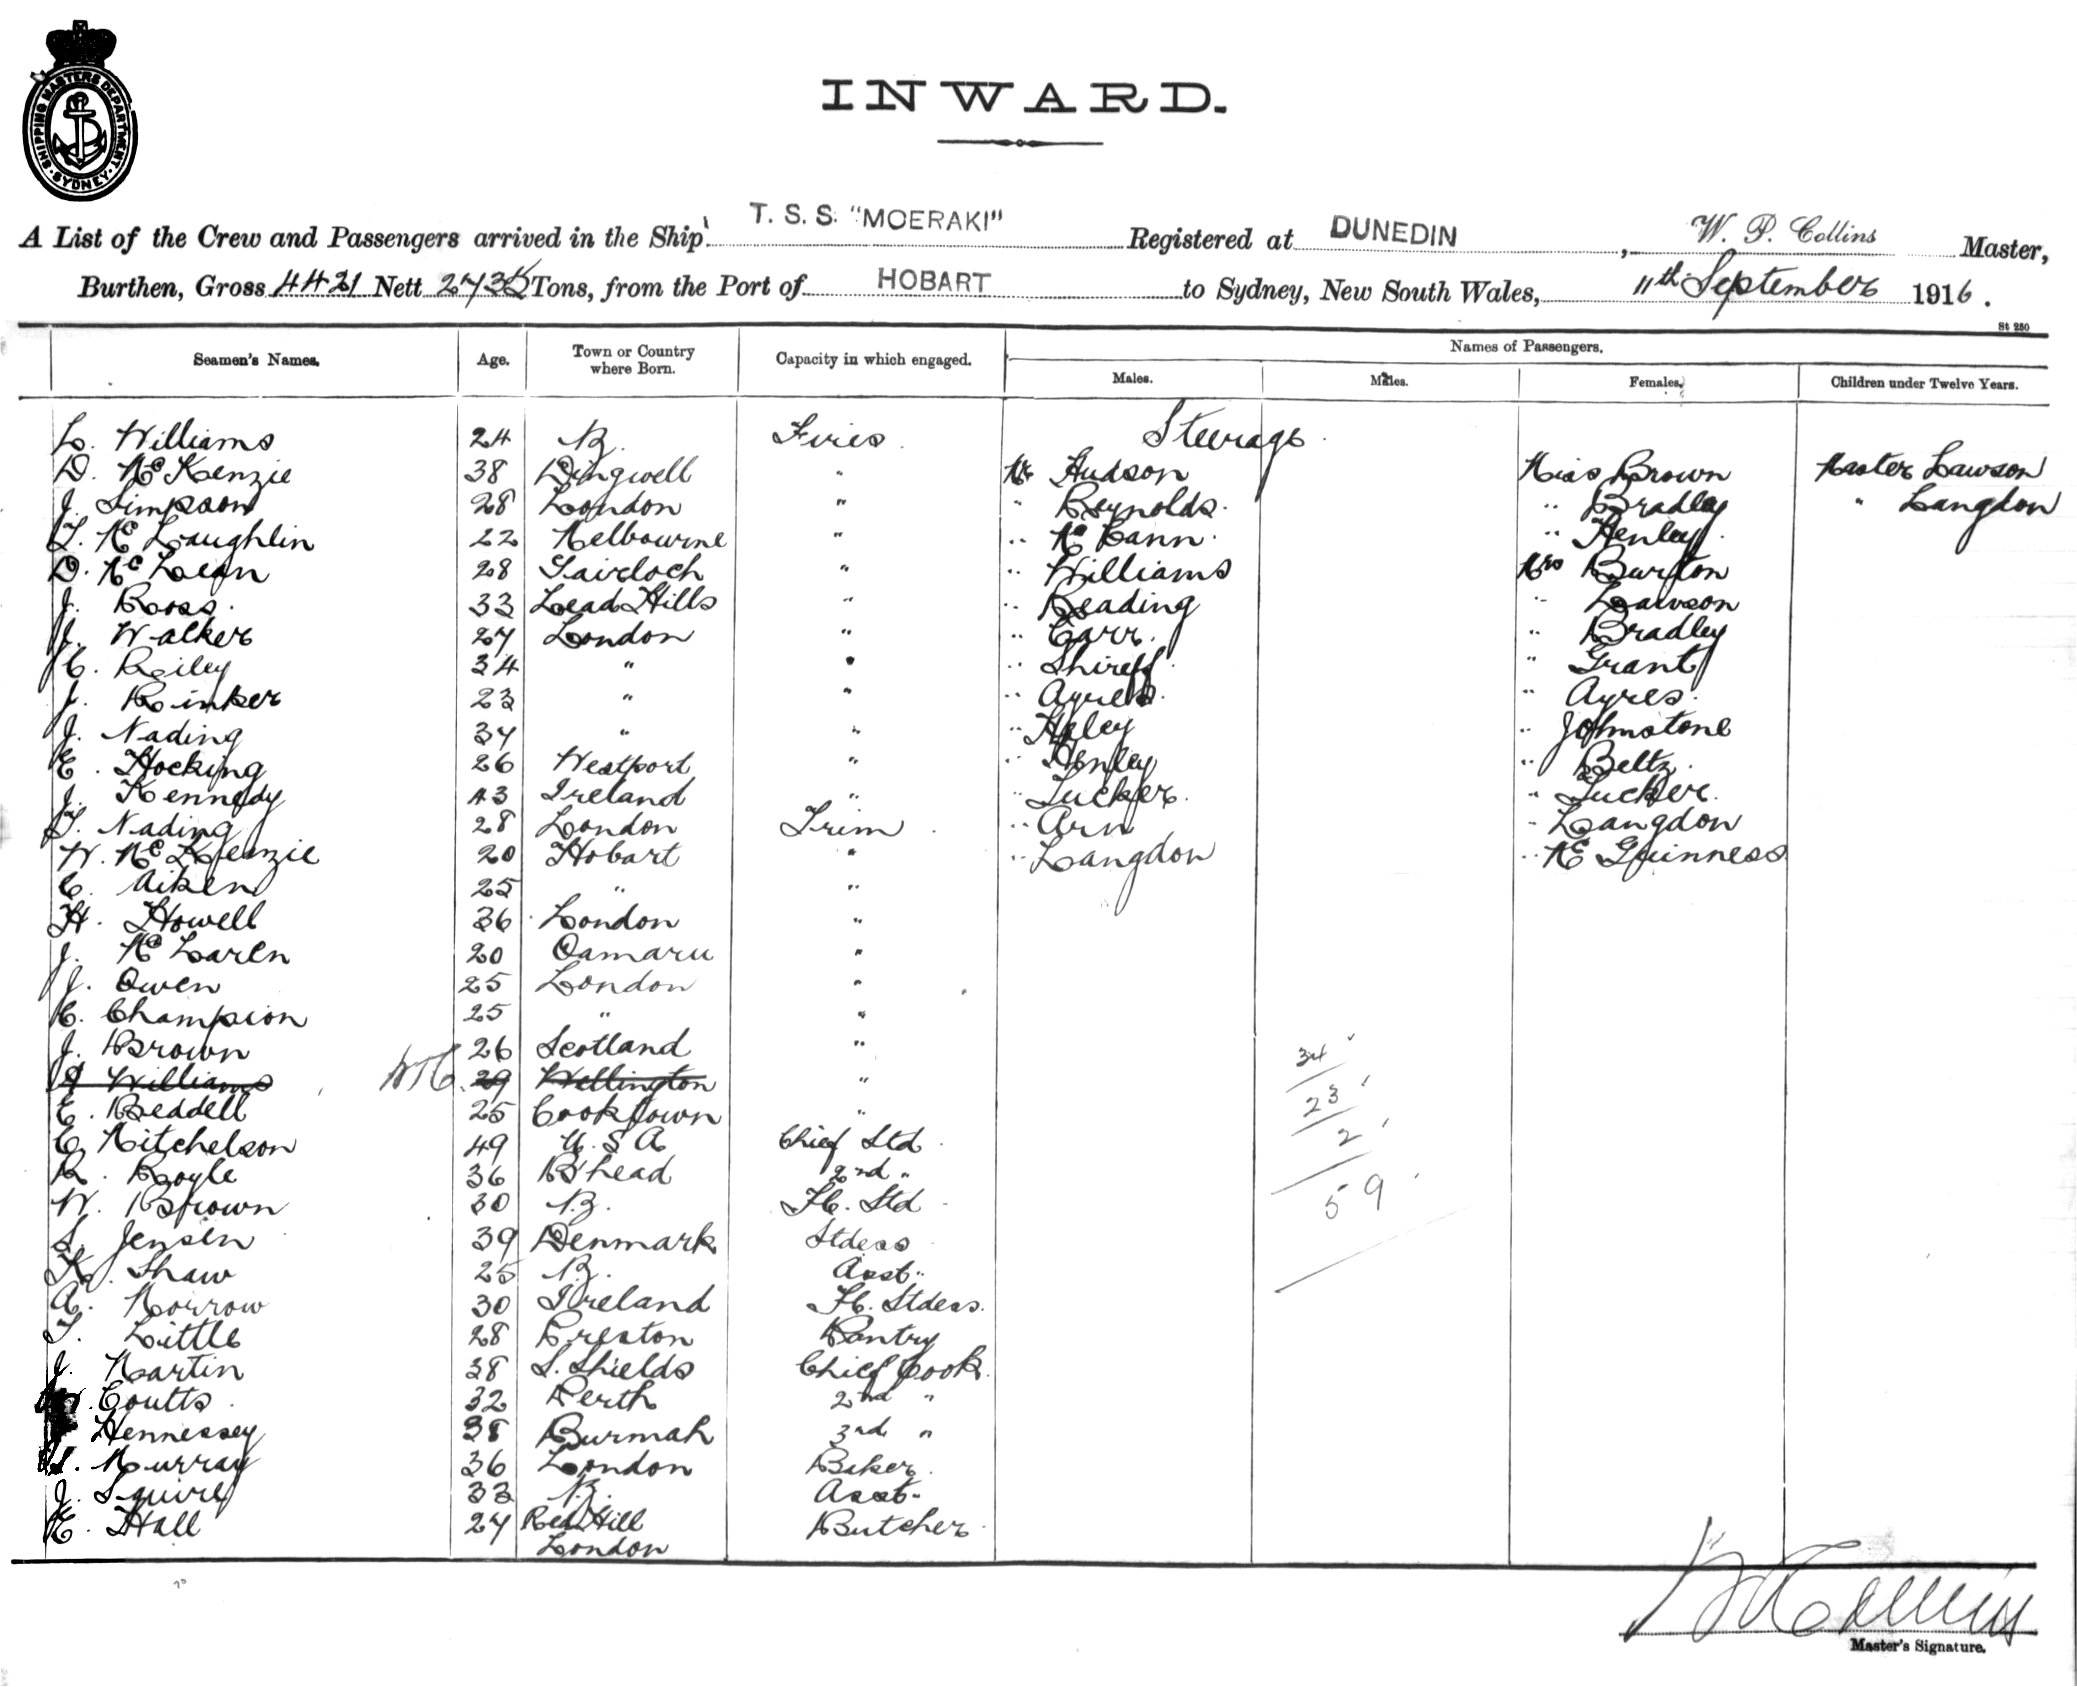 SHIPPING MASTERS DEPARTMENT · SYDNEY ·
INWARD.
A List of the Crew and Passengers arrived in the Ship T. S. S. "MOERAKI" Registered at DUNEDIN, W. P. Collins Master,
Burthen, Gross 4421 Nett Tons, from the Port of HOBART to Sydney, New South Wales, 11th September 1916.
St 250
Seamen's Names. Age. Town or Country where Born. Capacity in which engaged. Names of Passengers.
Males. Males. Females. Children under Twelve Years.
L. Williams 24 N.Z. Fires Steerage
D. McKenzie 38 Dingwell " Mr Hudson Miss Brown Master Lawson
J. Simpson 28 London " " Reynolds. " Bradley " Langdon
T. McLaughlin 22 Melbourne " " McCann " Henley
D. McLean 28 Gairloch " " Williams Mrs Burton
J. Ross 33 Lead Hills " " Reading " Lawson
J. Walker 27 London " " Carr. " Bradley
C. Riley 34 " " " Shireff " Grant
J. Rinker 23 " " " Ayres. " Ayres.
J. Nading 34 " " " Haley " Johnstone
E. Hocking 26 Westport " " Henley " Beltz.
J. Kennedy 43 Ireland " " Tucker. " Tucker.
T. Nading 28 London Trim " Arn " Langdon
W. McKenzie 20 Hobart " " Langdon " McGuinness
C. Aiken 25 " "
H. Howell 36 London "
J. McLaren 20 Oamaru "
J. Owen 25 London "
C. Champion 25 " "
J. Brown 26 Scotland "
Williams 29 Wellington "
E. Beddell 25 Cooktown "
C. Mitchelson 49 U. S A Chief Std
R. Royle 36 B'head 2nd "
W. Brown 30 N.Z. F.C. Std
S. Jensen 39 Denmark Stdess
K. Shaw 25 N.Z. Asst "
A. Morrow 30 Ireland F.C. Stdess.
T. Little 28 Preston Pantry
J. Martin 38 S. Shields Chief Cook
Coutts 32 Perth 2nd "
Hennessey 38 Burmah 3rd "
Murray 36 London Baker
J. Squire 33 N.Z. Asst.
E. Hall 27 Red Hill London Butcher
34
23
2
59
Master's Signature.